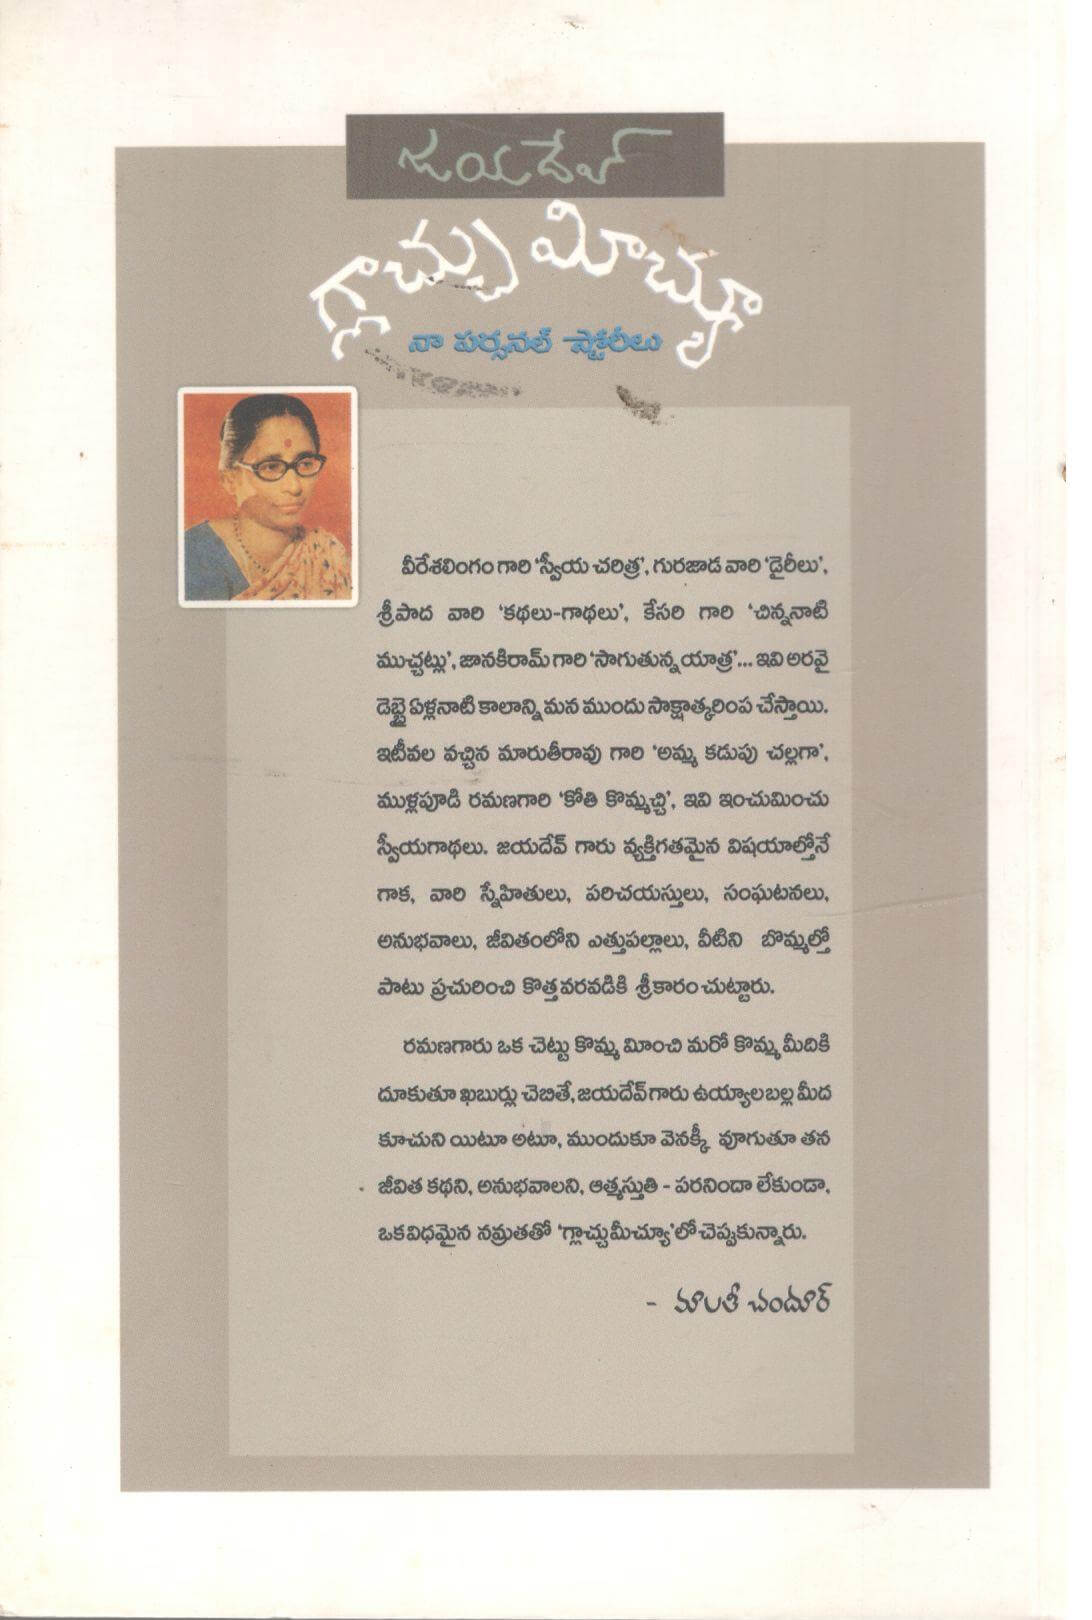 జయదేవ్
గ్లాచ్చు మీచ్యూ
నా పర్సనల్ స్టోరీలు
వీరేశలింగం గారి ‘స్వీయ చరిత్ర’, గురజాడ వారి ‘డైరీలు’,
శ్రీపాద వారి ‘కథలు-గాథలు’, కేసరి గారి ‘చిన్ననాటి
ముచ్చట్లు’, జానకిరామ్ గారి ‘సాగుతున్నయాత్ర’... ఇవి అరవై
డెబ్బై ఏళ్లనాటి కాలాన్ని మన ముందు సాక్షాత్కరింప చేస్తాయి.
ఇటీవల వచ్చిన మారుతీరావు గారి ‘అమ్మ కడుపు చల్లగా’,
ముళ్లపూడి రమణగారి ‘కోతి కొమ్మచ్చి’, ఇవి ఇంచుమించు
స్వీయగాథలు. జయదేవ్ గారు వ్యక్తిగతమైన విషయాల్తోనే
గాక, వారి స్నేహితులు, పరిచయస్తులు, సంఘటనలు,
అనుభవాలు, జీవితంలోని ఎత్తుపల్లాలు, వీటిని బొమ్మల్తో
పాటు ప్రచురించి కొత్త వరవడికి శ్రీకారం చుట్టారు.
రమణగారు ఒక చెట్టు కొమ్మ మించి మరో కొమ్మ మీదికి
దూకుతూ ఖబుర్లు చెబితే, జయదేవ్ గారు ఉయ్యాల బల్ల మీద
కూచుని యిటూ అటూ, ముందుకూ వెనక్కీ వూగుతూ తన
జీవిత కథని, అనుభవాలని, ఆత్మస్తుతి - పరనిందా లేకుండా,
ఒకవిధమైన నమ్రతతో ‘గ్లాచ్చుమీచ్యూ’లో చెప్పకున్నారు.
- మాలతీ చందూర్